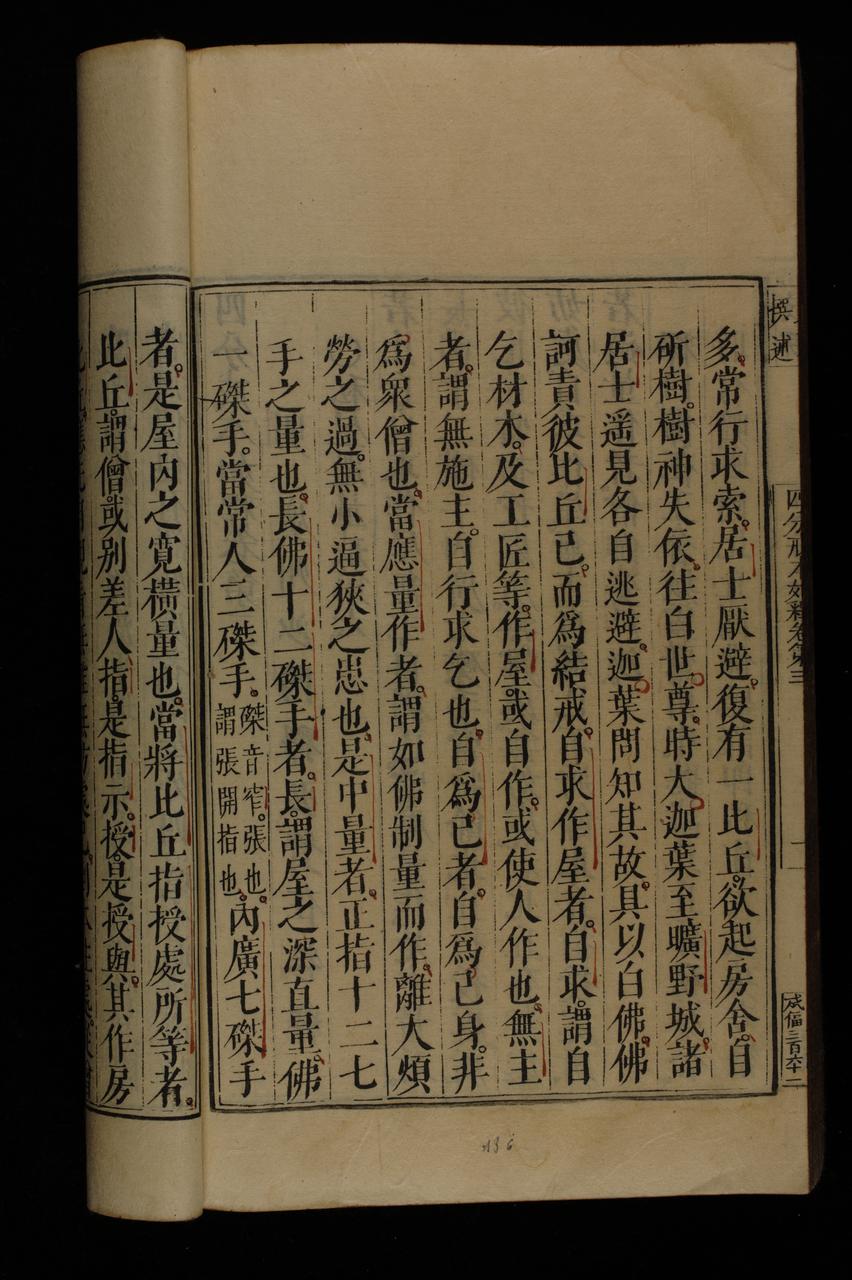 撰述
四分戒本如釋卷第三
二
咸偪三百六十二
多。常行求索。居士厭避。復有一比丘。欲起房舍。自
斫樹。樹神失依。往白世尊。時大迦葉至曠野城。諸
居士遥見各自逃避。迦葉問知其故。具以白佛。佛
訶責彼比丘已。而爲結戒。自求作屋者。自求。謂自
乞材木。及工匠等。作屋。或自作。或使人作也。無主
者。謂無施主。自行求乞也。自爲己者。自爲己身。非
爲衆僧也。當應量作者。謂如佛制量而作。離大煩
勞之過。無小逼狹之患也。是中量者。正指十二七
手之量也。長佛十二磔手者。長。謂屋之深直量。佛
一磔手。當常人三磔手。磔音窄。張也。謂張開指也。內廣七磔手
者。是屋內之寬橫量也。當將比丘指授處所等者。
比丘。謂僧。或別差人。指。是指示。授。是授與。其作房
136